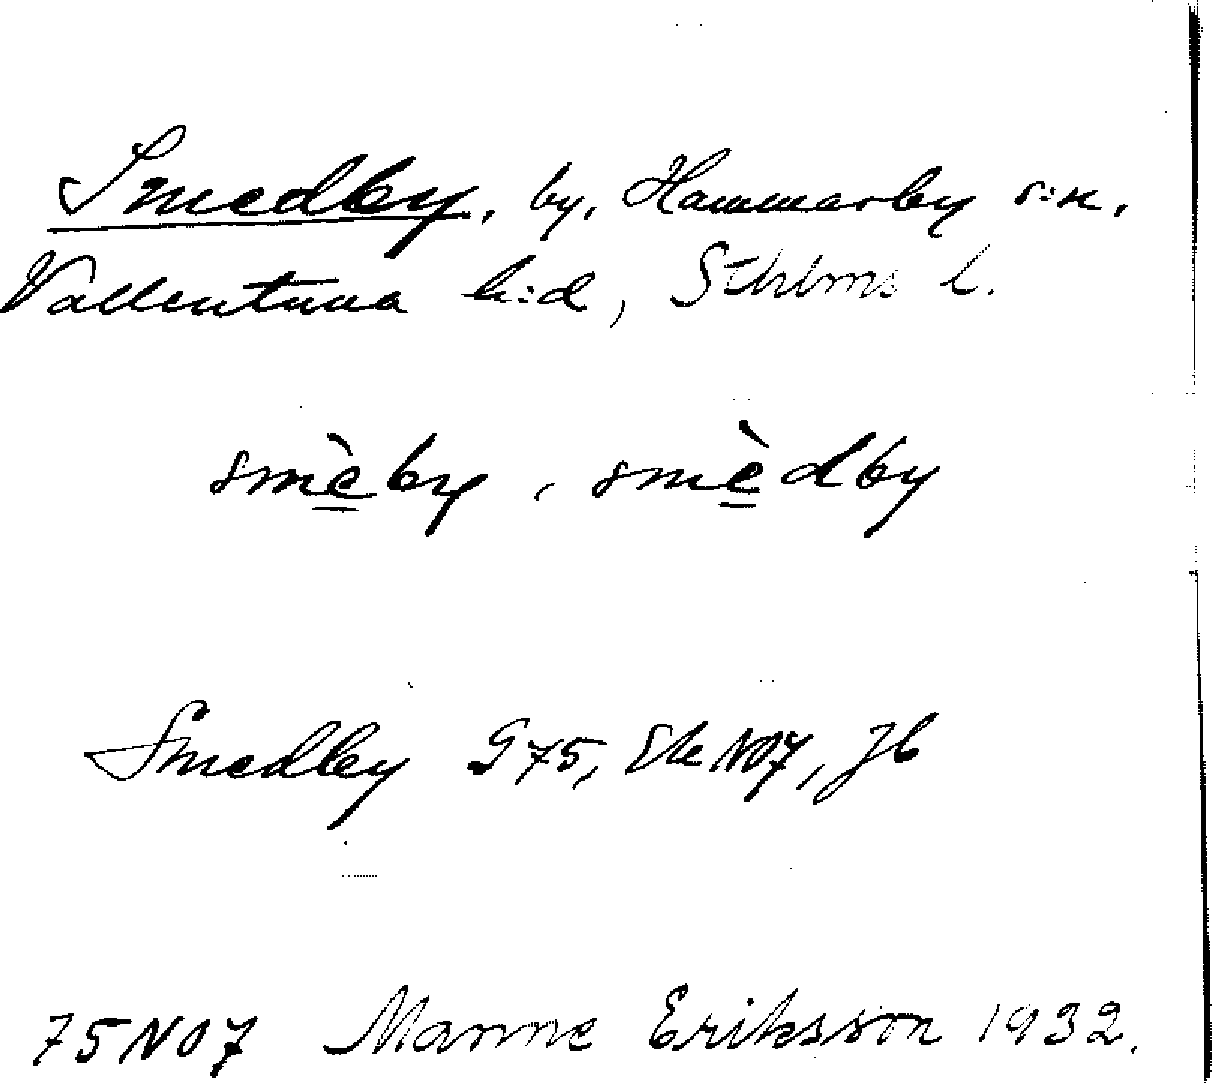 Smedby, by, Hammarby s:n,
Vallentuna h:d, Sthlms l.
smè̱by, smè̱dby
Smedby G75, Ek NO7, Jb
75NO7 Manne Eriksson 1932.